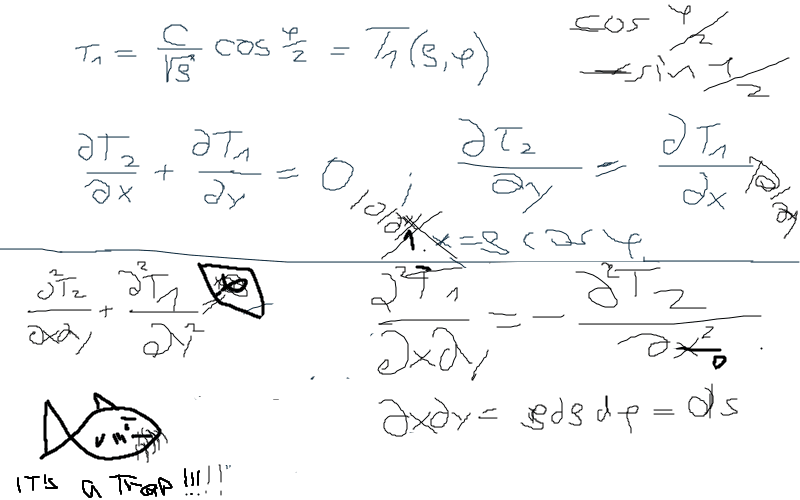 T₁ = C/√ρ cos φ/2 = T₁(ρ,φ)
cos φ/2
sin φ/2
∂T₂/∂x + ∂T₁/∂y = 0
∂T₂/∂y = ∂T₁/∂x
x = ρ cos φ
∂²T₂/∂x∂y + ∂²T₁/∂y²
∂²T₁/∂x∂y = - ∂²T₂/∂x²
∂x∂y = ρdρdφ = ds
IT'S a TrAP !!!!!"